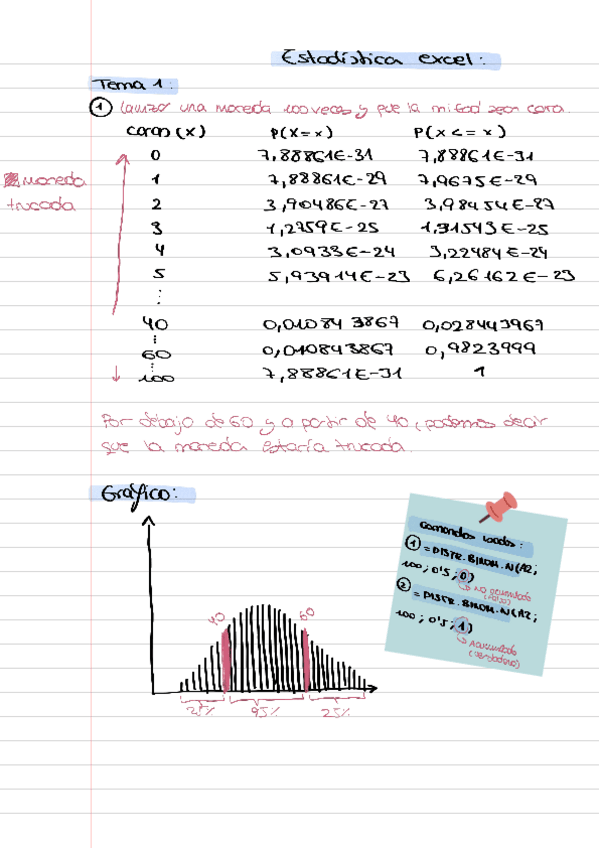 Estadística excel:
Tema 1:
1 Lanzar una moneda 100 veces y que la mitad sean cara.
caras (x) P(X=x) P(x<=x)
0 7,88861E-31 7,88861E-31
1 7,88861E-29 7,9675E-29
2 3,90486E-27 3,98454E-27
3 1,2759E-25 1,31543E-25
4 3,0933E-24 3,22484E-24
5 5,93914E-23 6,26162E-23
⋮
40 0,010843867 0,028443967
⋮
60 0,010843867 0,9823999
⋮
100 7,88861E-31 1
moneda
trucada
Por debajo de 60 y a partir de 40, podemos decir
que la moneda estaría trucada.
Gráfico:
40 60
2'5% 95% 2'5%
Comandos usados:
1 =DISTR.BINOM.N(A2;
100; 0'5; 0)
↳ No acumulado
(falso)
2 =DISTR.BINOM.N(A2;
100; 0'5; 1)
↳ Acumulado
(verdadero)